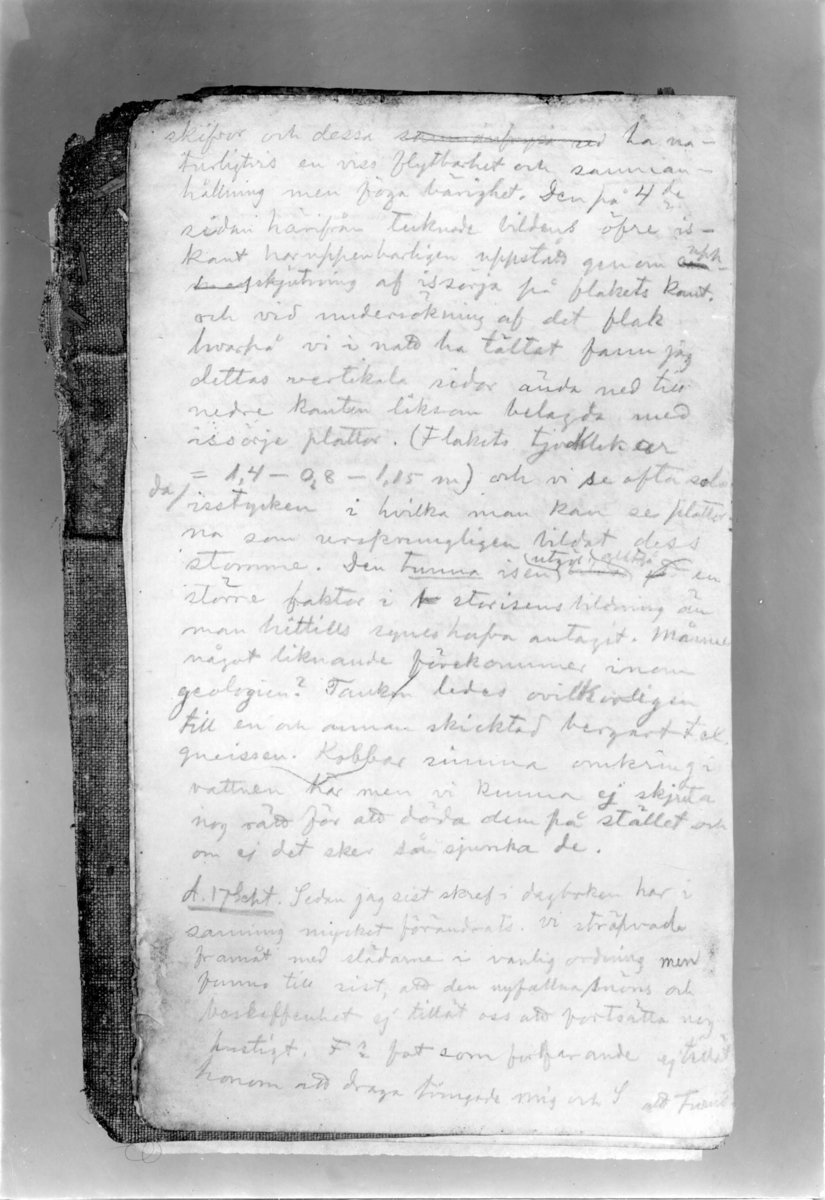 skifror och dessa ha na-
turligtvis en viss flytbarhet och samman-
hållning men föga bärighet. Den på 4de
sidan härifrån tecknade bildens öfre is-
kant har uppenbarligen uppstått genom upp-
skjutning af issörja på flakets kant.
och vid undersökning af det flak
hvarpå vi i natt ha tältat fann jag
dettas vertikala sidor ända ned till
nedre kanten liksom belagda med
issörje plattor. (Flakets tjocklekar
= 1,4 – 0,8 – 1,15 m) och vi se ofta
isstycken i hvilka man kan se plattor-
na som ursprungligen bildat dess
stomme. Den tunna isen utgör alltså en
större faktor i storisens bildning än
man hittills synes hafva antagit. Månne
något liknande förekommer inom
geologien? Tanken ledes ovillkorligen
till en och annan skicktad bergart t. ex.
gneissen. Kobbar simma omkring i
vattnen här men vi kunna ej skjuta
nog rätt för att döda dem på stället och
om ej det sker så sjunka de.
d. 17 Sept. Sedan jag sist skref i dagboken har i
sanning mycket förändrats. Vi sträfvade
framåt med slädarne i vanlig ordning men
funno till sist, att den nyfallna snöns och
beskaffenhet ej tillät oss att fortsätta nog
hastigt. F:s fot som fortfarande ej tillät
honom att draga tvingade mig och S att